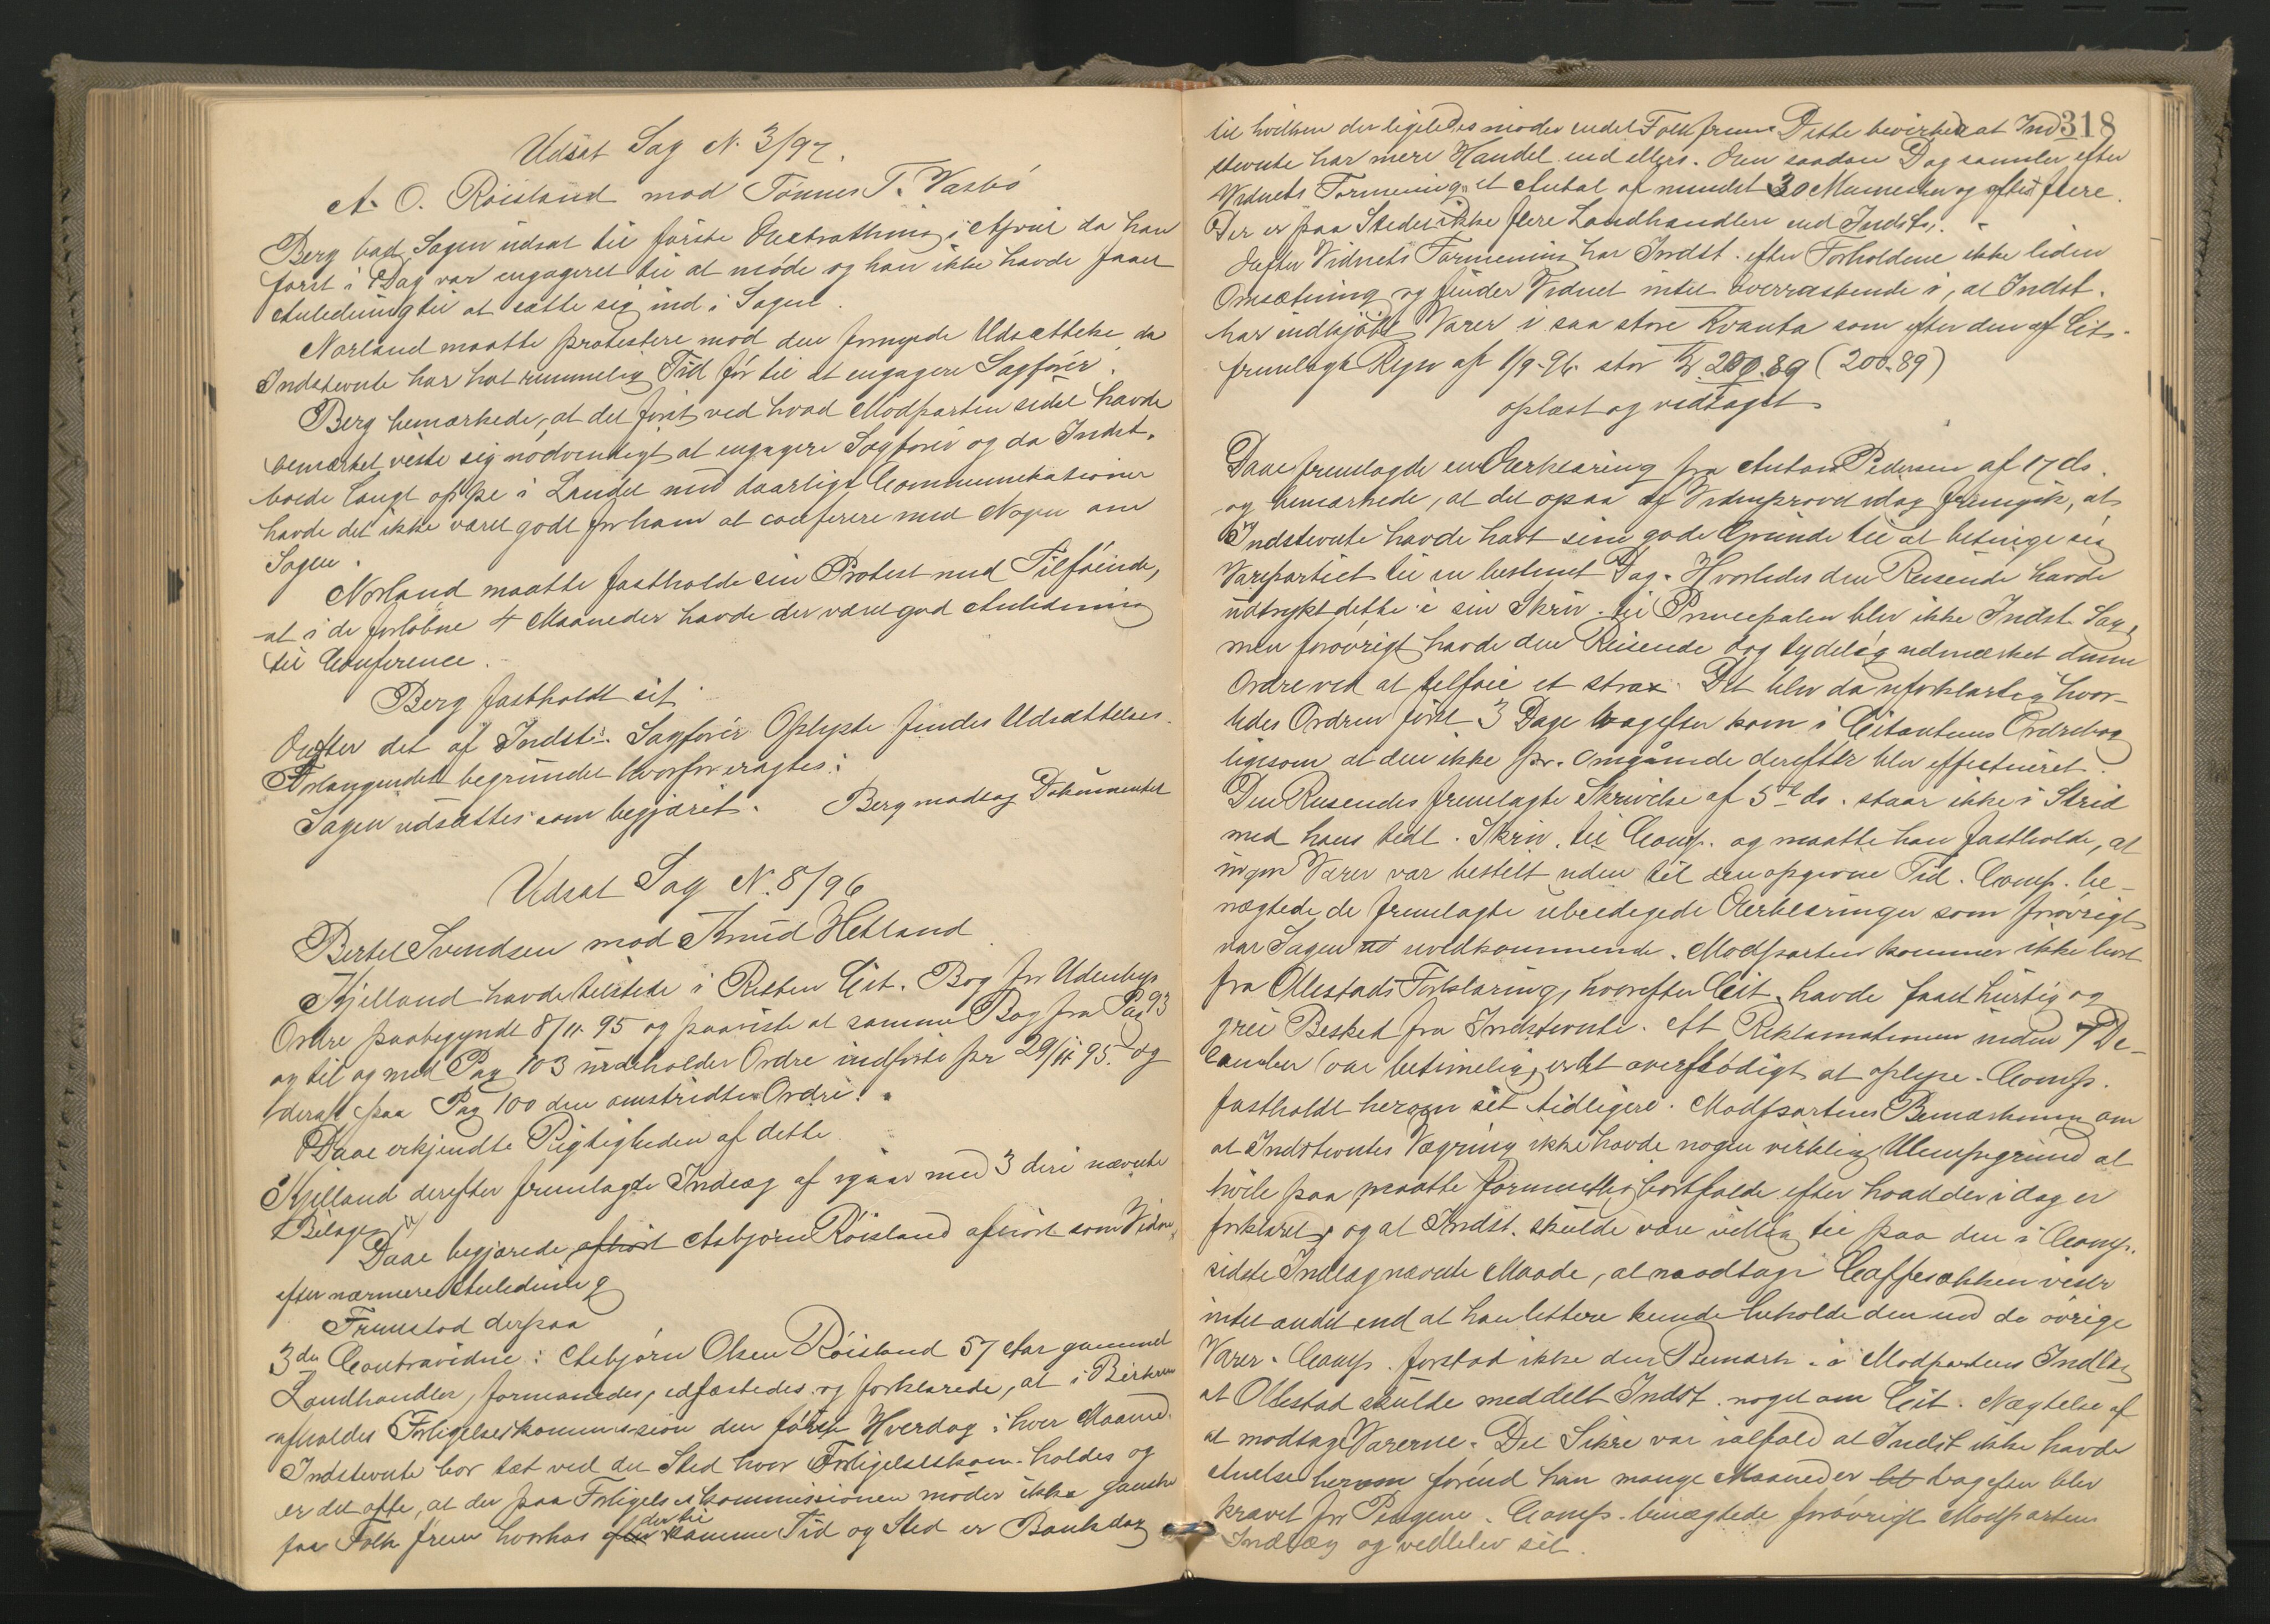 Udsat Sag N. 3/97.
A. O. Röisland mod Tönnes T. Vasbö
Berg bad Sagen udsat til förste Extrathing i April da han
först i Dag var engageret til at möde og han ikke havde faaet
Anledning til at sætte sig ind i Sagen.
Norland maatte protestere mod den fornyede Udsættelse da
Indstevnte har hat rummelig Tid för til at engagere Sagförer.
Berg bemærkede, at det först ved hvad Modparten sidst havde
bemærket viste sig nödvendigt at engagere Sagförer og da Indst.
boede langt oppe i Landet med daarlige Communikationer
havde det ikke været godt for ham at conferere med Nogen om
Sagen.
Norland maatte fastholde sin Protest med Tilföiende,
at i de forlöbne 4 Maaneder havde der været god Anledning
til Conference.
Berg fastholdt sit.
Efter det af Indst. Sagförer Oplyste findes Udsættelses-
Forlangendet begrundet hvorfor eragtes:
Sagen udsættes som begjæret. Berg modtog Dokumentet
Udsat Sag N. 8/96
Bertel Svendsen mod Knud Hetland
Kjelland havde tilstede i Retten Cit. Bog for Udenbys
Ordre paabegyndt 8/11. 95 og paaviste at samme Bog fra Pag 93
og til og med Pag 103 indeholder Ordre indförte pr 29/11 95. og
deraf paa Pag 100 den omstridte Ordre.
Daae erkjendte Rigtigheden af dette
Kjelland derefter fremlagde Indlæg af igaar med 3 deri nævnte
Bilage
Daae begjærede afhört Asbjörn Röisland afhört som Vidne,
efter nærmere Anledning
Fremstod derpaa
3die Contravidne: Asbjörn Olsen Röisland 57 Aar gammel
Landhandler, formanedes, edfæstedes og forklarede, at i Birkrem
afholdes Forligelseskommission den förste Hverdag i hver Maaned.
Indstevnte bor tæt ved det Sted hvor Forligelseskom. holdes og
er det ofte, at der paa Forligelseskommissionen möder ikke ganske
faa Folk frem hvorhos der til samme Tid og Sted er Bankdag
318
til hvilken der ligeledes möder endel Folk frem. Dette bevirker at Ind-
stevnte har mere Handel end ellers. En saadan Dag samler efter
Vidnets Formening et Antal af mindst 30 Mennesker og oftest flere.
Der er paa Stedet ikke flere Landhandlere end Indst.
Efter Vidnets Formening har Indst. efter Forholdene ikke liden
Omsætning og finder Vidnet intet overraskende i, at Indst.
har indkjöbt Varer i saa store Kvanta som efter den af Cit.
fremlagte Regn af 1/9-96. stor Kr 200.89 (200.89)
oplæst og vedtaget
Daae fremlagde en Erklæring fra Anton Pedersen af 17 ds.
og bemærkede, at det ogsaa af Vidneprovet idag fremgik, at
Indstevnte havde havt sine gode Grunde til at betinge sig
Varepartiet til en bestemt Dag. Hvorledes den Reisende havde
udtrykt dette i sin Skriv. til Principalen blev ikke Indst. Sag,
men forövrigt havde den Reisende dog tydelig udmærket denne
Ordre ved at tilföie et strax. Det blev da uforklarlig hvor-
ledes Ordren först 3 Dage bagefter kom i Citantens Ordrebog
ligesom at den ikke pr. omgaaende derefter blev effectueret.
Den Reisendes fremlagte Skrivelse af 5te ds. staar ikke i Strid
med hans tidl. Skriv. til Comp. og maatte han fastholde, at
ingen Varer var bestilt uden til den opgivne Tid. Comp. be-
nægtede de fremlagte ubeedigede Erklæringer som forövrigt
var Sagen uvedkommende. Modparten kommer ikke bort
fra Ollestads Forklaring, hvorefter Cit. havde faaet hurtig og
grei Besked fra Indstevnte. At Reklamationen inden 7 De-
cember var betimelig, er det overflödigt at oplyse. Comp.
fastholdt herom sit tidligere. Modpartens Bemærkning om
at Indstevntes Vægring ikke havde nogen virkelig Ulempegrund at
hvile paa maatte formentlig bortfalde efter hvad der i dag er
forklaret, og at Indst. skulde være villig til paa den i Comp.
sidste Indlæg nævnte Maade, at modtage Caffesækken viser
intet andet end at han lettere kunde beholde den end de övrige
Varer. Comp. forstod ikke den Bemærk. i Modpartens Indlæg
at Ollestad skulde meddelt Indst. noget om Cit. Nægtelse af
at modtage Varerne. Det Sikre var ialfald at Indst ikke havde
Anelse herom förend han mange Maaneder bagefter blev
krævet for Pengene. Comp. benægtede forövrigt Modpartens
Indlæg og vedblev sit.